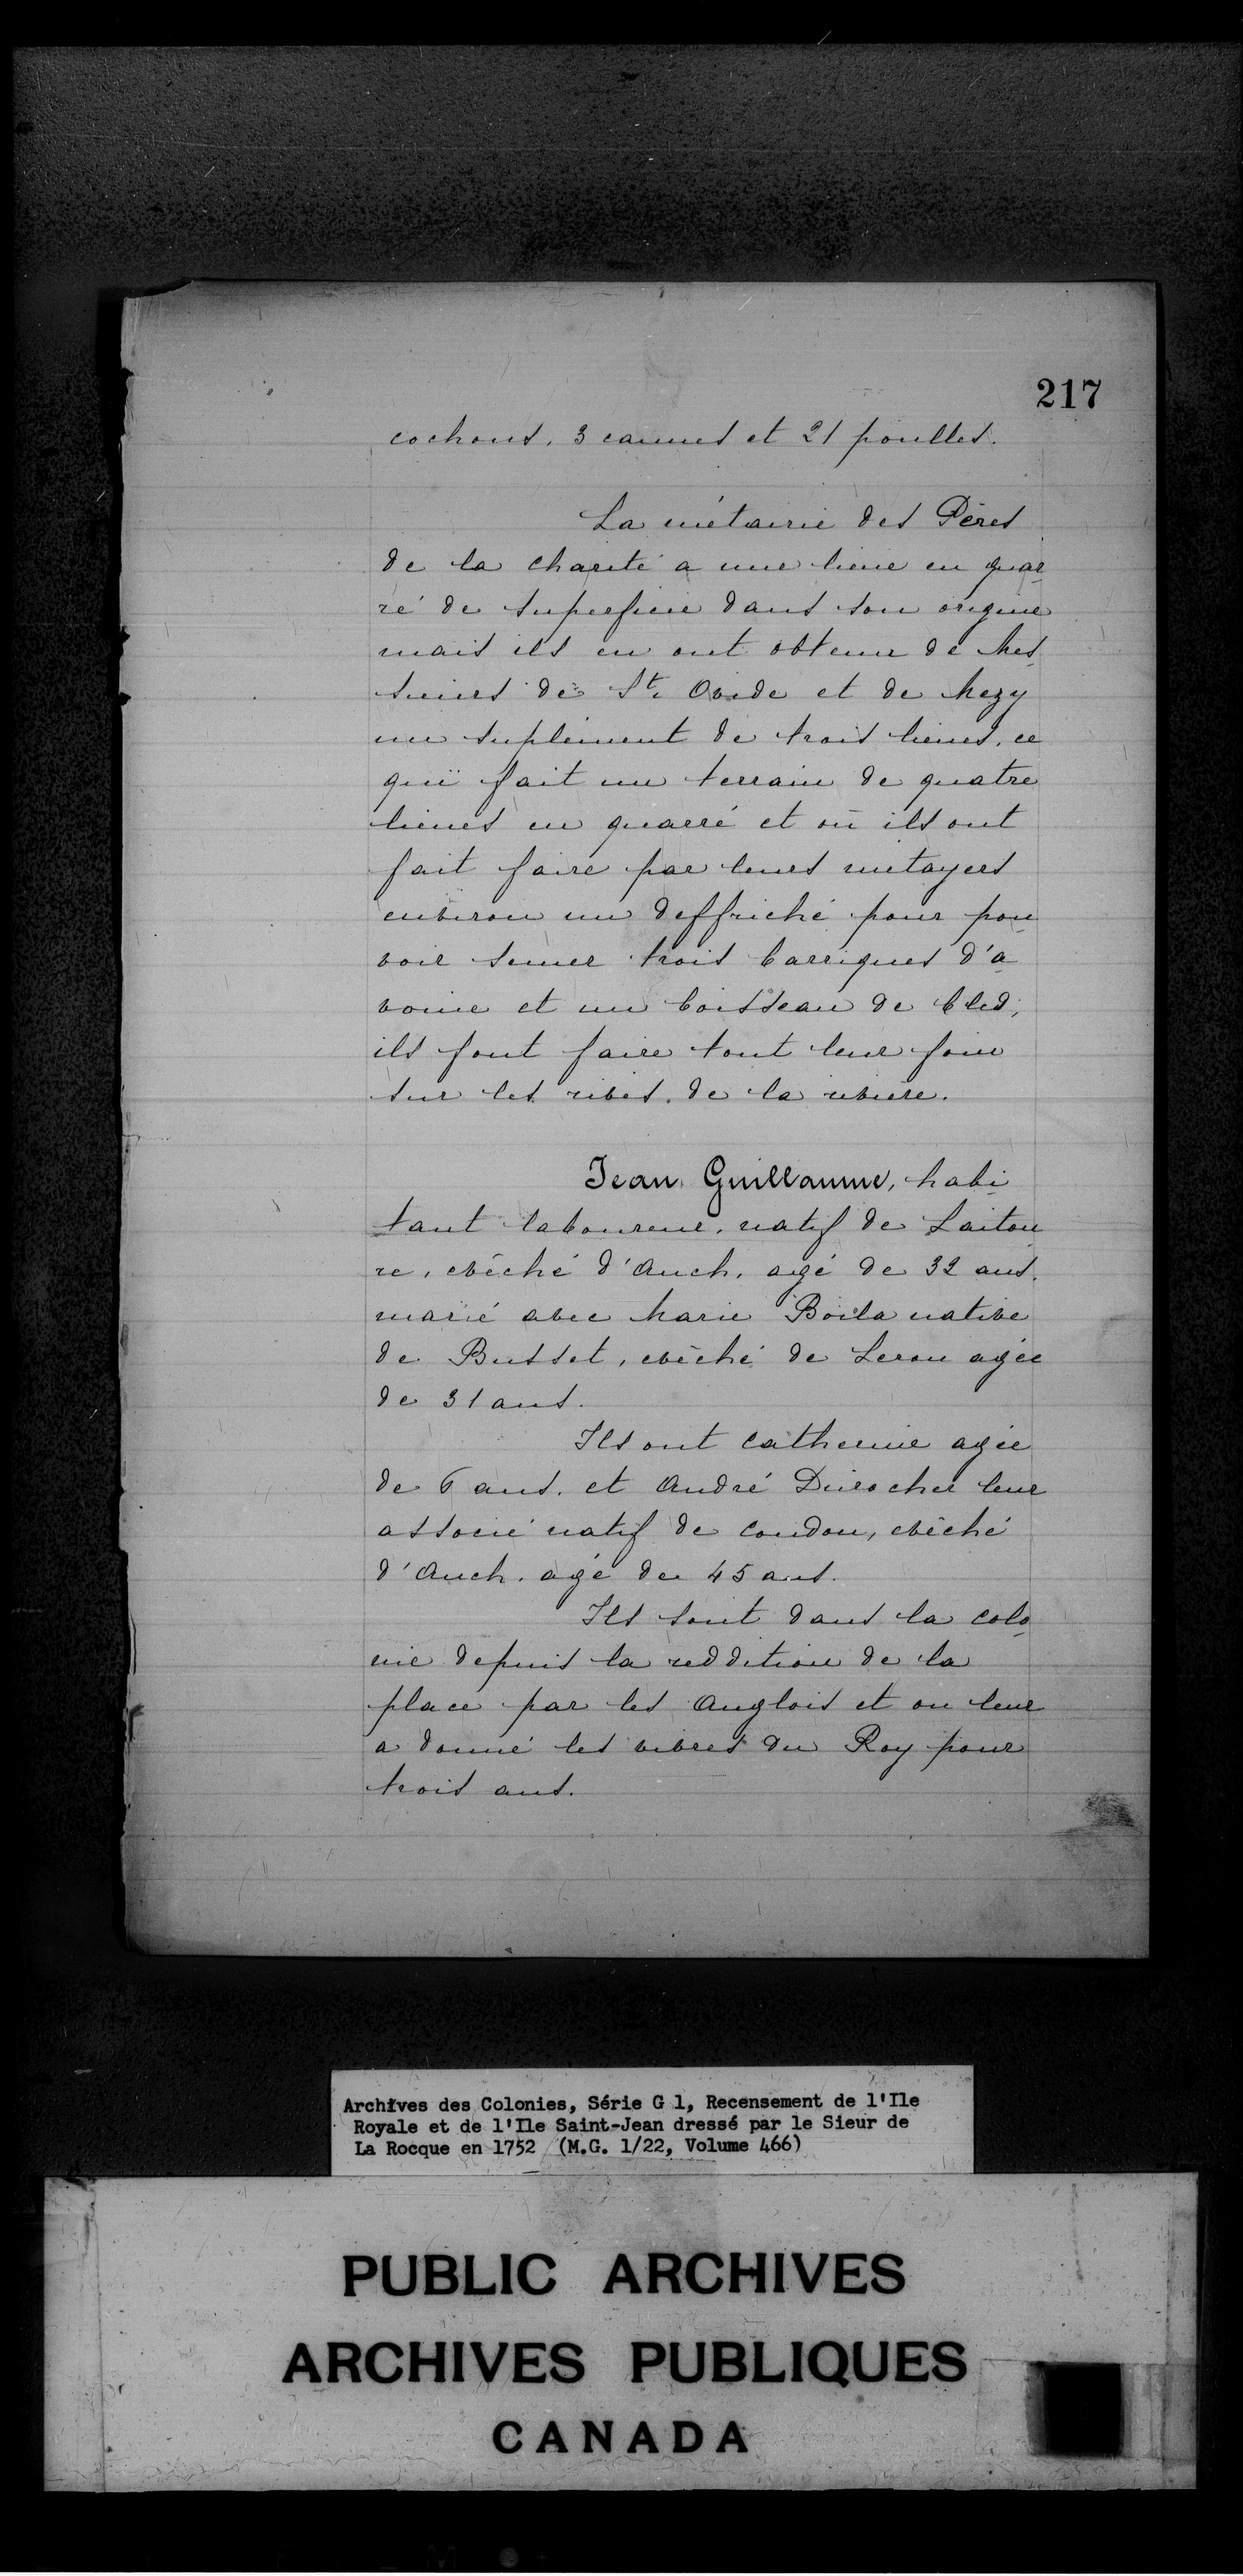 217
cochons, 3 cannes et 21 poulles.
La métairie des Pères
de la charité a une lieue en quar
ré de superficie dans son origine
mais ils en ont obtenu de Mes
sieurs de St. Ovide et de Mezy
un suplément de trois lieues, ce
qui fait un terrain de quatre
lieues en quarré et où ils ont
fait faire par leurs métayers
environ un deffriché pour pou
voir semer trois barriques d'a
voine et un boisseau de bled,
ils font faire tout leur foin
sur les rives de la rivière.
Jean Guillaume, habi
tant laboureur, natif de Laitou
re, évêché d'Auch, agé de 32 ans,
marié avec Marie Boila native
de Busset, évêché de Leron agée
de 31 ans.
Ils ont Catherine agée
de 6 ans, et André Durocher leur
associé natif de Condon, évêché
d'Auch, agé de 45 ans.
Ils sont dans la colo
nie depuis la reddition de la
place par les Anglois et on leur
a donné les vivres du Roy pour
trois ans.
Archives des Colonies, Série G 1, Recensement de l'Ile
Royale et de l'Ile Saint-Jean dressé par le Sieur de
La Rocque en 1752 (M.G. 1/22, Volume 466)
PUBLIC ARCHIVES
ARCHIVES PUBLIQUES
CANADA